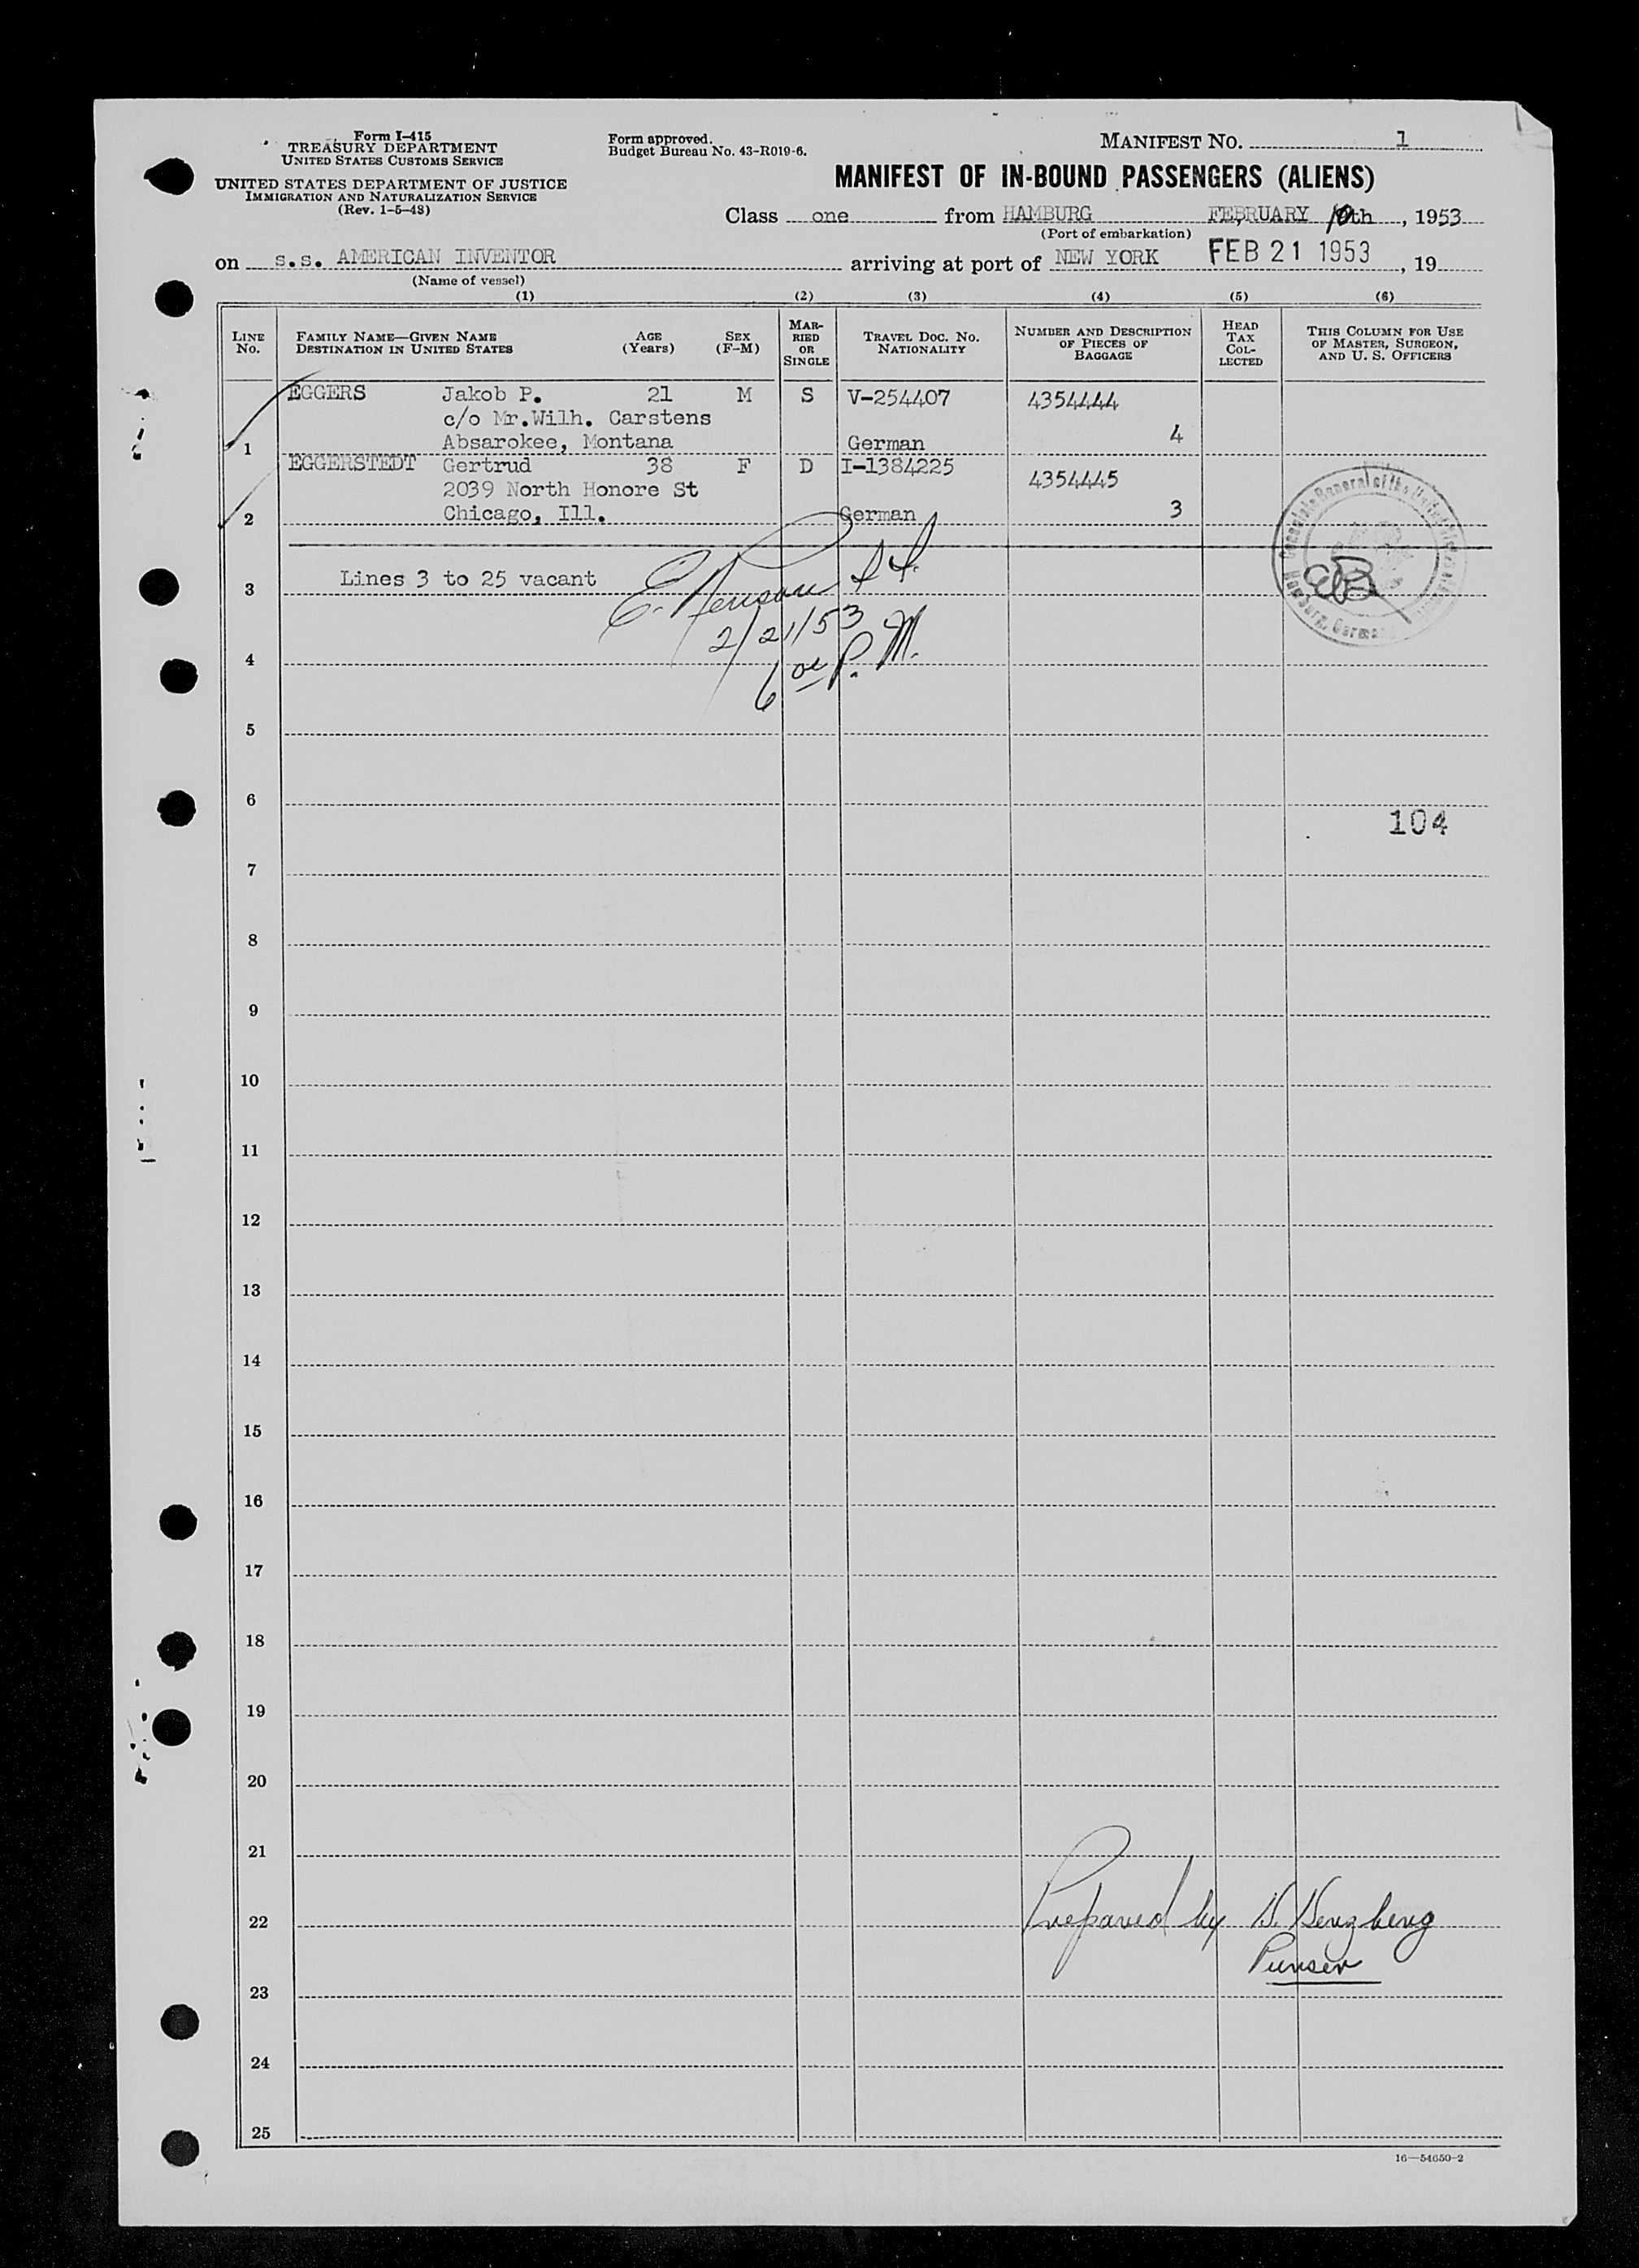 Form I-415
TREASURY DEPARTMENT
UNITED STATES CUSTOMS SERVICE
UNITED STATES DEPARTMENT OF JUSTICE
IMMIGRATION AND NATURALIZATION SERVICE
(Rev. 1-5-48)
Form approved.
Budget Bureau No. 43-R019-6.
MANIFEST NO. 1
MANIFEST OF IN-BOUND PASSENGERS (ALIENS)
Class one from HAMBURG FEBRUARY 10th, 1953
(Port of embarkation)
on s.s. AMERICAN INVENTOR arriving at port of NEW YORK FEB 21 1953, 19
(Name of vessel)
(1) (2) (3) (4) (5) (6)
LINE No.
FAMILY NAME—GIVEN NAME
DESTINATION IN UNITED STATES
AGE (Years)
SEX (F-M)
MARRIED OR SINGLE
TRAVEL DOC. NO.
NATIONALITY
NUMBER AND DESCRIPTION OF PIECES OF BAGGAGE
HEAD TAX COLLECTED
THIS COLUMN FOR USE OF MASTER, SURGEON, AND U. S. OFFICERS
EGGERS Jakob P. 21 M S V-254407 4354444
c/o Mr.Wilh. Carstens
1 Absarokee, Montana German 4
EGGERSTEDT Gertrud 38 F D I-1384225 4354445
2039 North Honore St
2 Chicago, Ill. German 3
3 Lines 3 to 25 vacant
2/21/53
4
6 00 P. M.
5
6
104
7
8
9
10
11
12
13
14
15
16
17
18
19
20
21
22 Prepared by
Purser
23
24
25
16—54650-2